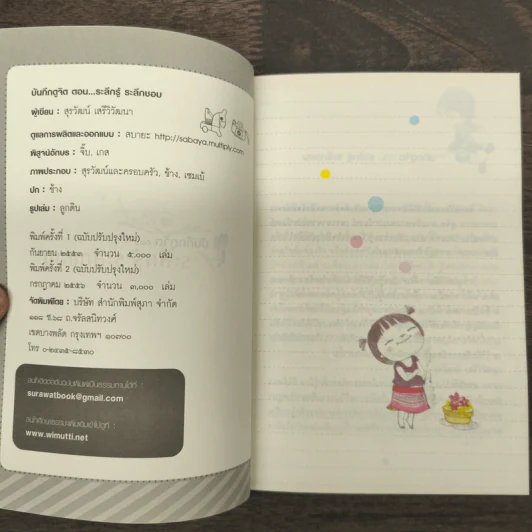 บันทึกดูจิต ตอน...ระลึกรู้ ระลึกชอบ
ผู้เขียน : สุรวัฒน์ เสรีวิวัฒนา
ดูแลการผลิตและออกแบบ : สบายะ http://sabaya.multiply.com
พิสูจน์อักษร : จิ๊บ, เกส
ภาพประกอบ : สุรวัฒน์และครอบครัว, ช้าง, เซมเบ้
ปก : ช้าง
รูปเล่ม : ลูกดิน
พิมพ์ครั้งที่ 1 (ฉบับปรับปรุงใหม่)
กันยายน ๒๕๕๓ จำนวน ๕,๐๐๐ เล่ม
พิมพ์ครั้งที่ 2 (ฉบับปรับปรุงใหม่)
กรกฎาคม ๒๕๕๖ จำนวน ๓,๐๐๐ เล่ม
จัดพิมพ์โดย : บริษัท สำนักพิมพ์สุภา จำกัด
๑๑๘ ซ.๖๘ ถ.จรัลสนิทวงศ์
เขตบางพลัด กรุงเทพฯ ๑๐๗๐๐
โทร
สนใจติดต่อขอฉบับเต็มแจกเป็นธรรมทานได้ที่ :
surawatbook@gmail.com
สนใจศึกษาธรรมะเพิ่มเติมเข้าไปดูที่ :
www.wimutti.net